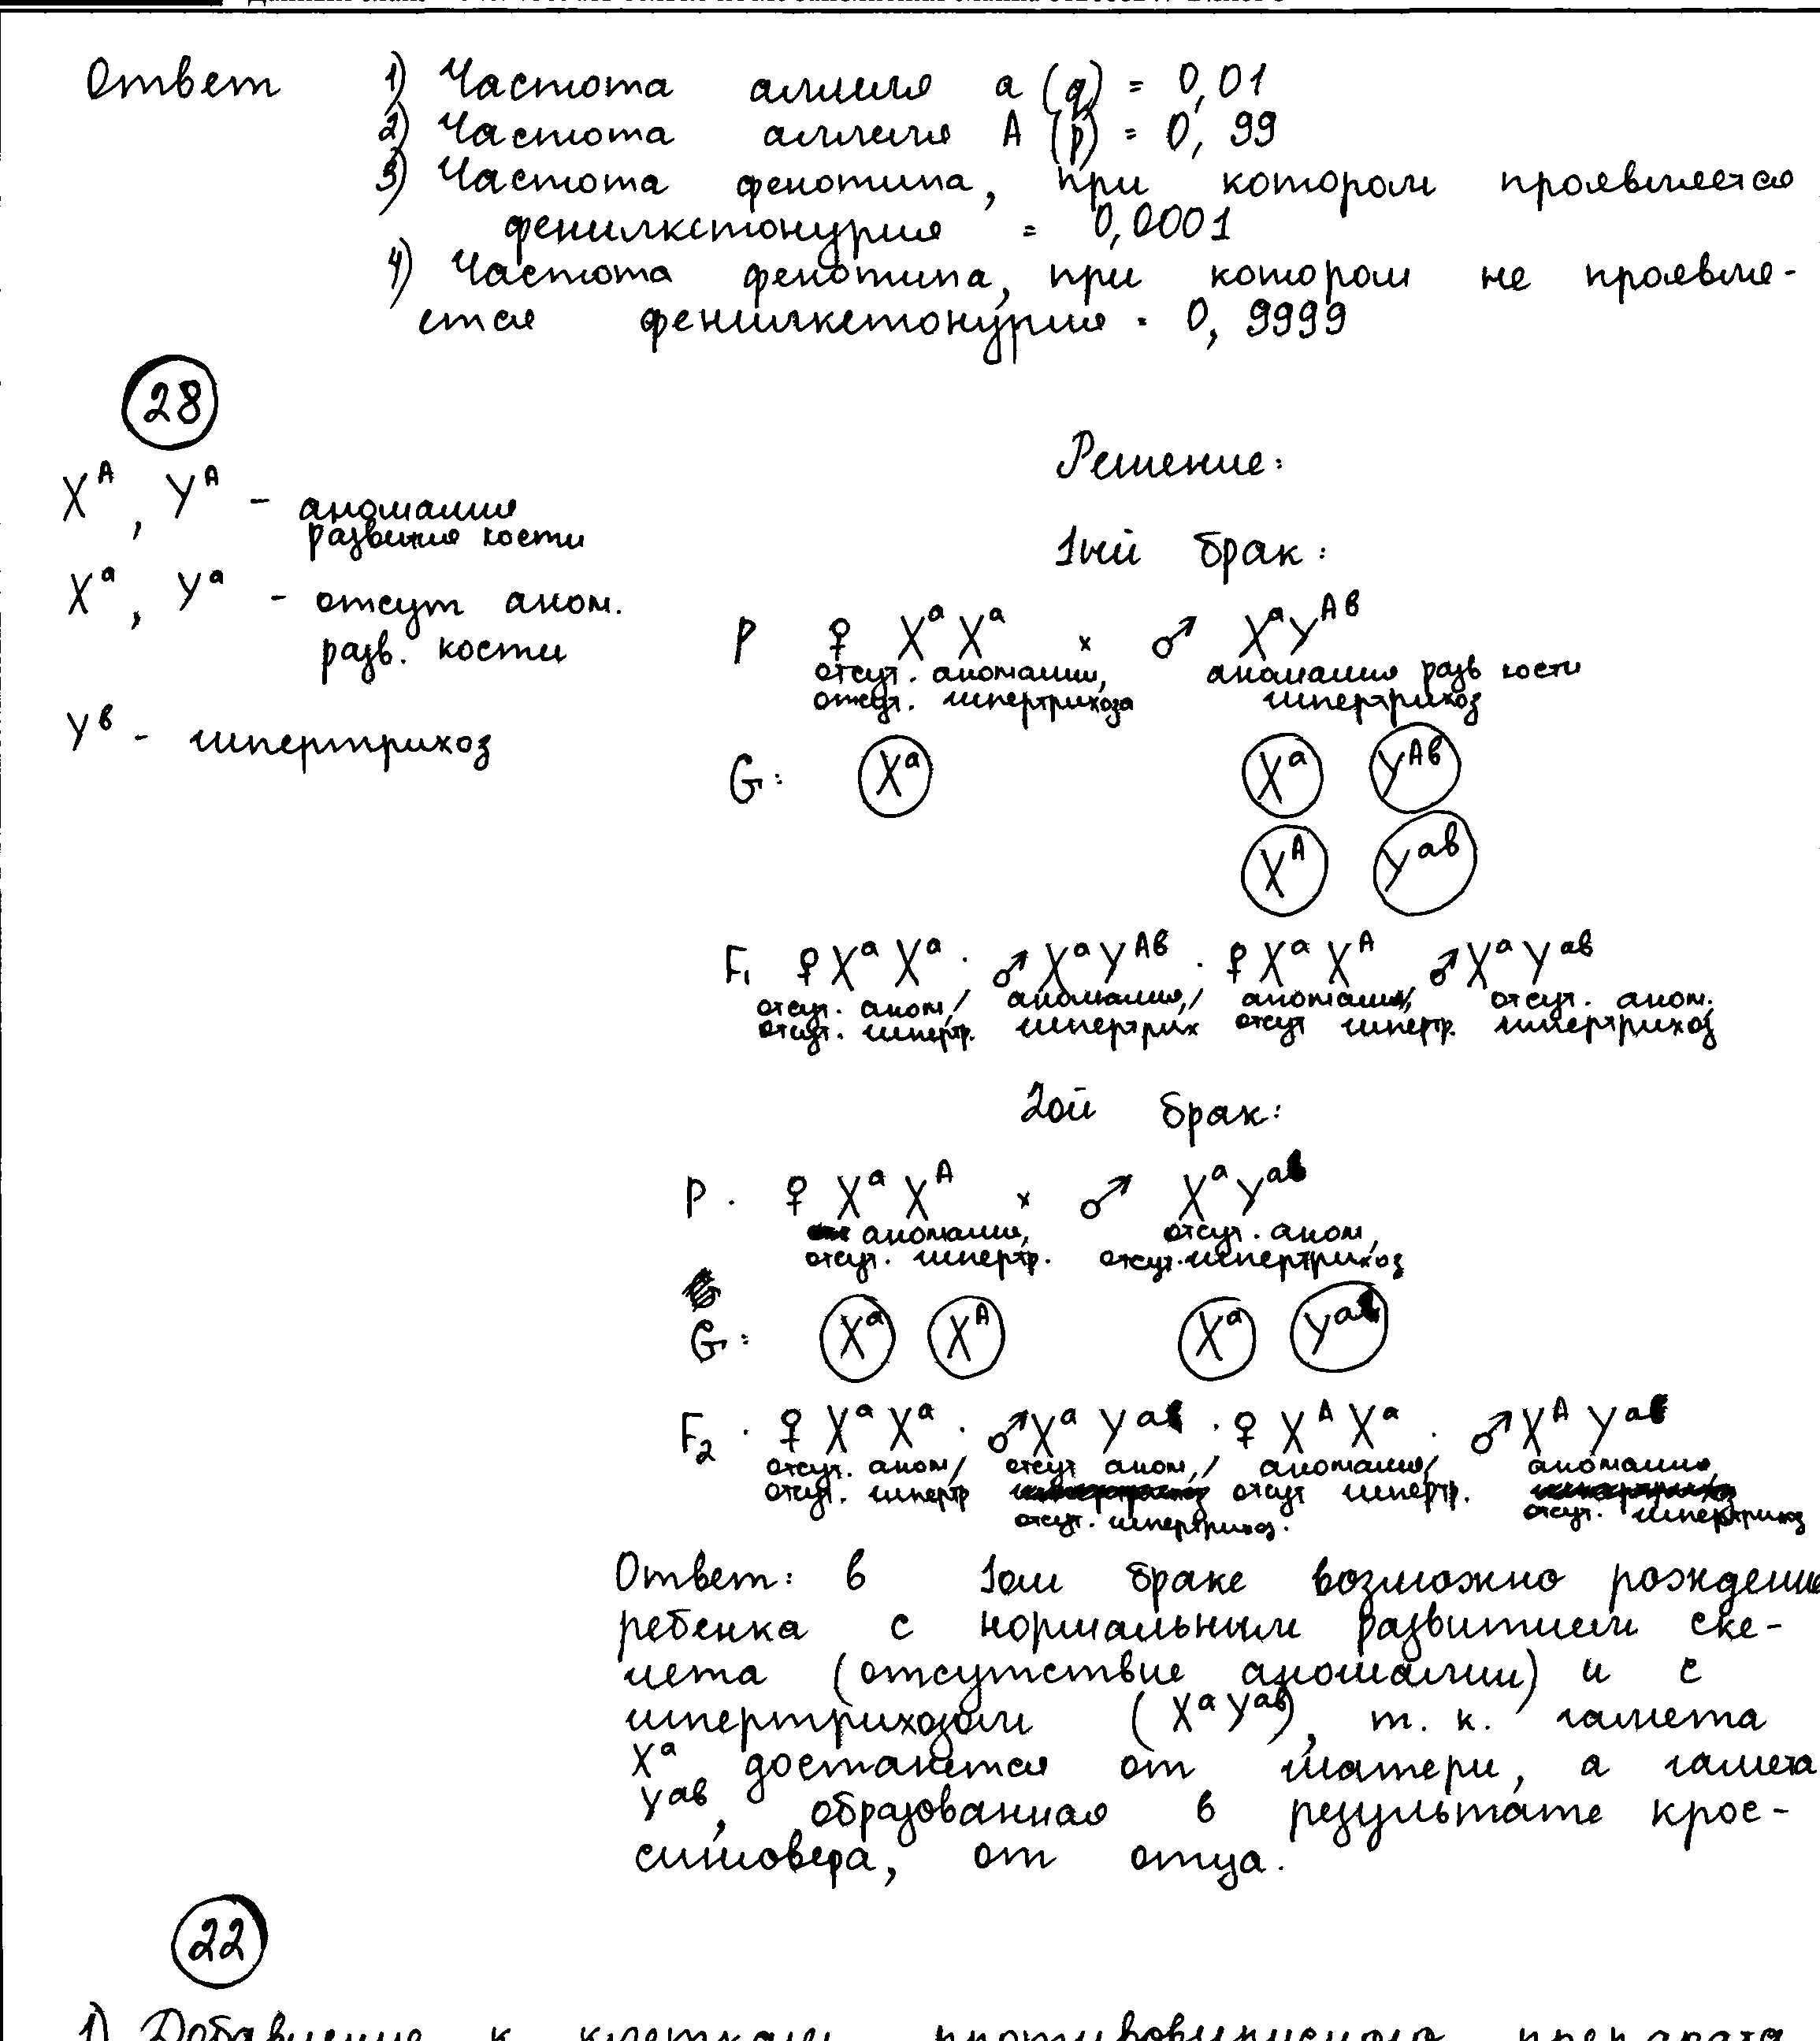 Ответ 1) Частота аллеля a (q) = 0,01
2) Частота аллеля A (p) = 0,99
3) Частота фенотипа, при котором проявляется
фенилкетонурия = 0,0001
4) Частота фенотипа, при котором не проявля-
ется фенилкетонурия = 0,9999
28
X^A, Y^A - аномалия
развития кости
X^a, Y^a - отсут аном.
разв. кости
Y^в - гипертрихоз
Решение:
1ый брак:
P ♀ X^a X^a × ♂ X^a Y^Aв
отсут. аномалии, аномалия разв кости
отсут. гипертрихоза гипертрихоз
G: X^a X^a Y^Aв
X^A Y^aв
F1 ♀ X^a X^a . ♂ X^a Y^Aв . ♀ X^a X^A ♂ X^a Y^aв
отсут. аном,/ аномалия,/ аномалия,/ отсут. аном.
отсут. гипертр. гипертрих отсут гипертр. гипертрихоз
2ой брак:
P . ♀ X^a X^A × ♂ X^a Y^a
аномалия, отсут. аном,
отсут. гипертр. отсут. гипертрихоз
G: X^a X^A X^a Y^a
F2 . ♀ X^a X^a . ♂ X^a Y^a . ♀ X^A X^a . ♂ X^A Y^a
отсут. аном/ отсут аном,/ аномалия/ аномалия,
отсут. гипертр отсут гипертр.
отсут. гипертрихоз. отсут. гипертрихоз
Ответ: в 1ом браке возможно рождение
ребенка с нормальным развитием ске-
лета (отсутствие аномалии) и с
гипертрихозом (X^a Y^aв), т. к. гамета
X^a достанется от матери, а гамета
Y^aв, образованная в результате крос-
синговера, от отца.
22
1) Добавление к клеткам противовирусного препарата